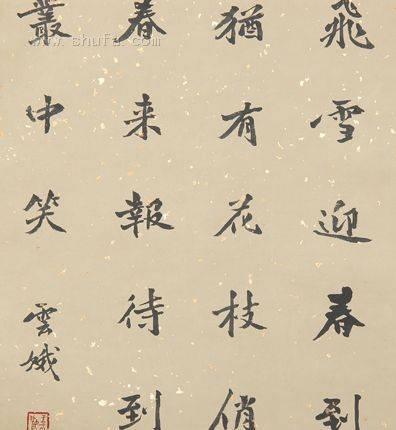 飛雪迎春到
猶有花枝俏
春来報待到
叢中笑
雲娥
www.shufa.com